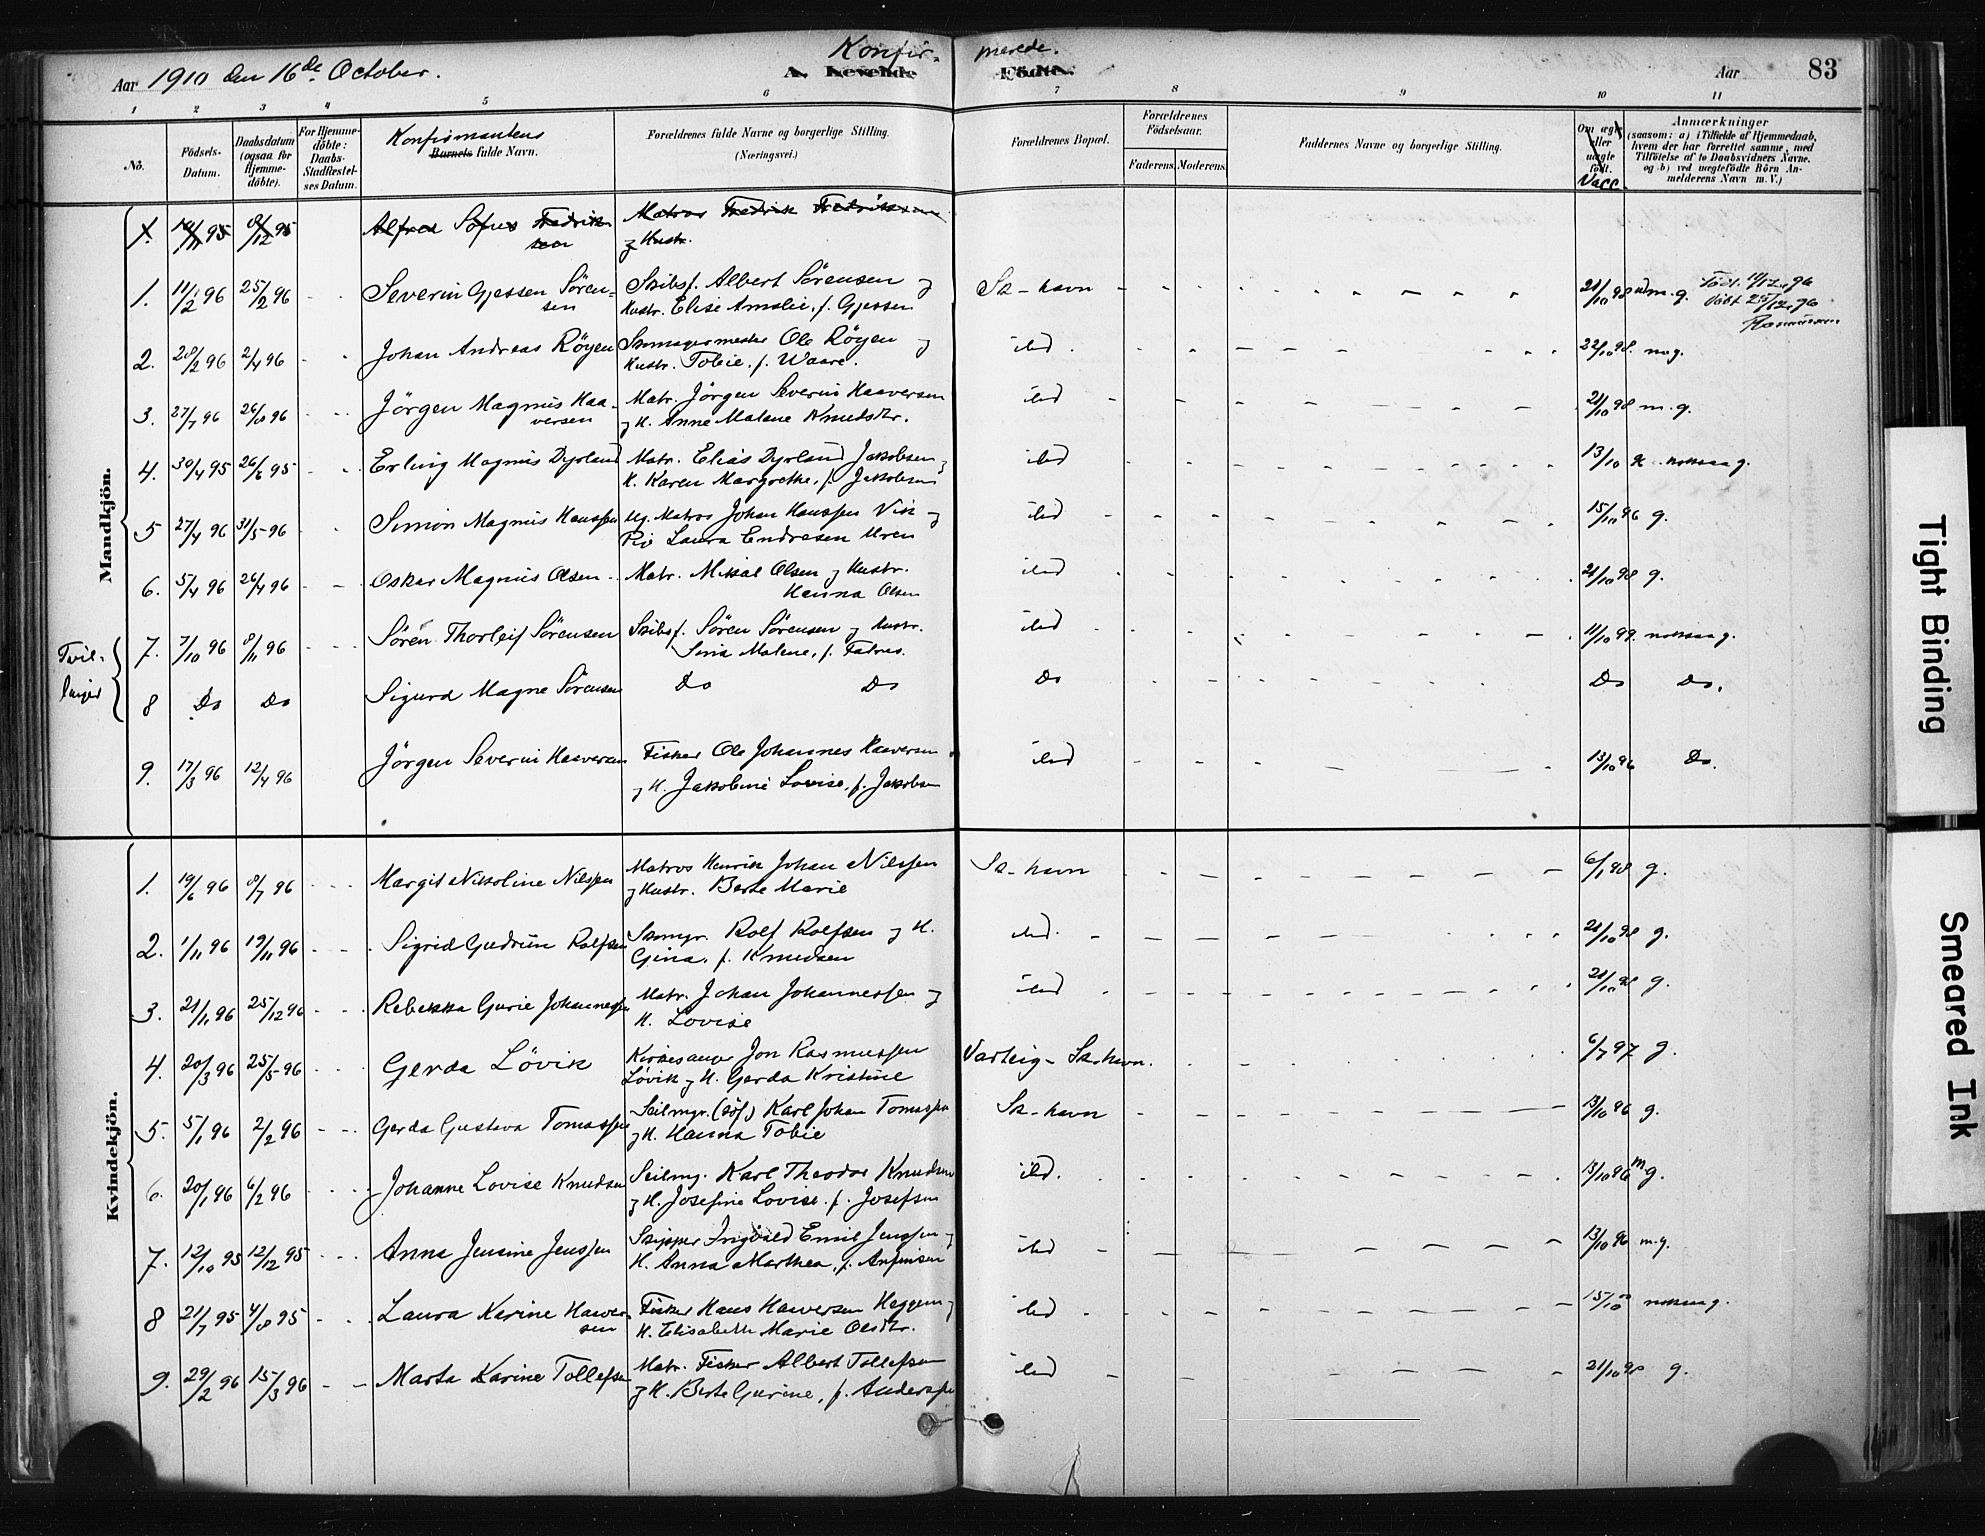 Aar 1910 den 16de October.
Konfir- merede.
A. Levende Födte.
Aar 83
1 2 3 4 5 6 7 8 9 10 11
No.
Födsels-
Datum.
Daabsdatum
(ogsaa for
Hjemme-
döbte).
For Hjemme-
döbte:
Daabs-
Stadfestel-
ses Datum.
Konfirmantens
Barnets fulde Navn.
Forældrenes fulde Navne og borgerlige Stilling.
(Næringsvei.)
Forældrenes Bopæl.
Forældrenes
Födselsaar.
Faderens. Moderens.
Faddernes Navne og borgerlig Stilling.
Om ægte
eller
uægte
født.
Vacc.
Anmærkninger
(saasom: a) i Tilfælde af Hjemmedaab,
hvem der har forrettet samme, med
Tilföielse af to Daabsvidners Navne.
og b) ved uægtefödte Börn An-
melderens Navn m. V.)
Mandkjön.
1. 95 8/12 95 Alfred Sofus Fredrik- Matros Fredrik Fredriksen
sen og Hustr.
1. 11/2 96 25/2 96 Severin Gjessen Sören- Skibsf. Albert Sörensen og Sk-havn 21/10 98 m.g.
sen Hustr. Elise Amalie, f. Gjessen
2. 28/2 96 2/4 96 Johan Andreas Röyen Skomagermester Ole Röyen og ibid. 22/10 98. mg.
Hustr. Tobie, f. Waare.
3. 27/7 96 26/8 96 Jörgen Magnus Haa- Matr. Jörgen Severin Haaversen ibid 21/10 98 m.g.
versen og H. Anne Malene Knudsdtr.
4. 30/4 95 26/6 95 Erling Magnus Dyrland Matr. Elias Dyrland Jakobsen og ibid 13/10 96 noksaa g.
H. Karen Margrethe, f. Jakobsen
5 27/4 96 31/5 96 Simon Magnus Hanssen Ug. Matros Johan Hanssen Vik og ibid 15/10 96 g.
Pie Laura Endresen Uren
6. 5/4 96 26/4 96 Oskar Magnus Olsen Matr. Mikal Olsen og Hustr. ibid 21/10 98 g.
Hanna Olsen
Tvil-
linger
7. 7/10 96 8/11 96 Sören Thorleif Sörensen Skibsf. Sören Sörensen og Hustr. ibid 11/10 99. noksaa g.
Sina Malene, f.
8 Do Do Sigurd Magne Sörensen Do Do Do Do Do.
9. 17/3 96 12/4 96 Jörgen Severin Haaversen Fisker Ole Johannes Haaversen ibid 13/10 96 Do.
og H. Jakobine Lovise, f. Jakobsen
Kvindekjön.
1. 19/6 96 8/7 96 Margit Nikoline Nilssen Matros Henrik Johan Nilssen Sk-havn 6/1 98 g.
og Hustr. Berte Marie
2. 1/11 96 19/11 96 Sigrid Gudrun Rolfsen Skomgr. Rolf Rolfsen og H. ibid. 21/10 98 g.
Gina, f. Knudsen
3. 21/11 96 25/12 96 Rebekka Gurie Johannessen Matr. Johan Johannessen og ibid 21/10 98 g.
H. Lovise
4. 20/3 96 25/5 96 Gerda Lövik Kirkesanger Jon Rasmussen Varteig- Sk-havn. 6/7 97 g.
Lövik og H. Gerda Kristine
5. 5/1 96 2/2 96 Gerda Gustava Tomassen Seilmgr. Karl Johan Tomassen Sk-havn 13/10 96 g.
og H. Hanna Tobie
6. 20/1 96 6/2 96 Johanne Lovise Knudsen Seilmg. Karl Theodor Knudsen ibid. 13/10 96 m.g.
og H. Josefine Lovise, f. Josefsen
7. 12/10 95 12/12 95 Anna Jensine Jenssen Skipper Ingvald Emil Jenssen og ibid 13/10 96 m.g.
H. Anna Marthea, f. Anfinsen
8 21/7 95 4/8 95 Laura Karine Haaver- Fisker Hans Haaversen Heggem og ibid 15/10 00 noksaa g.
sen H. Elisabeth Marie Olsdtr.
9. 29/2 96 15/3 96 Marta Karine Tollefsen Matr. Fisker Albert Tollefsen ibid 21/10 98 g.
og H. Berte Gurine, f. Anderssen
Födt 11/12 96
döbt 25/12 96
Rasmussen
Tight Binding
Smeared Ink